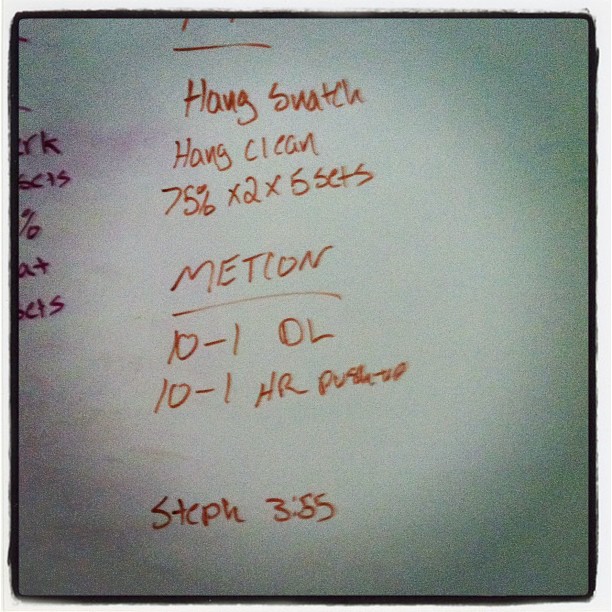 Hang Snatch
Hang Clean
75% x2 x 5 sets
METCON
10-1 DL
10-1 HR push-up
Steph 3:55
rk
sets
%
at
sets